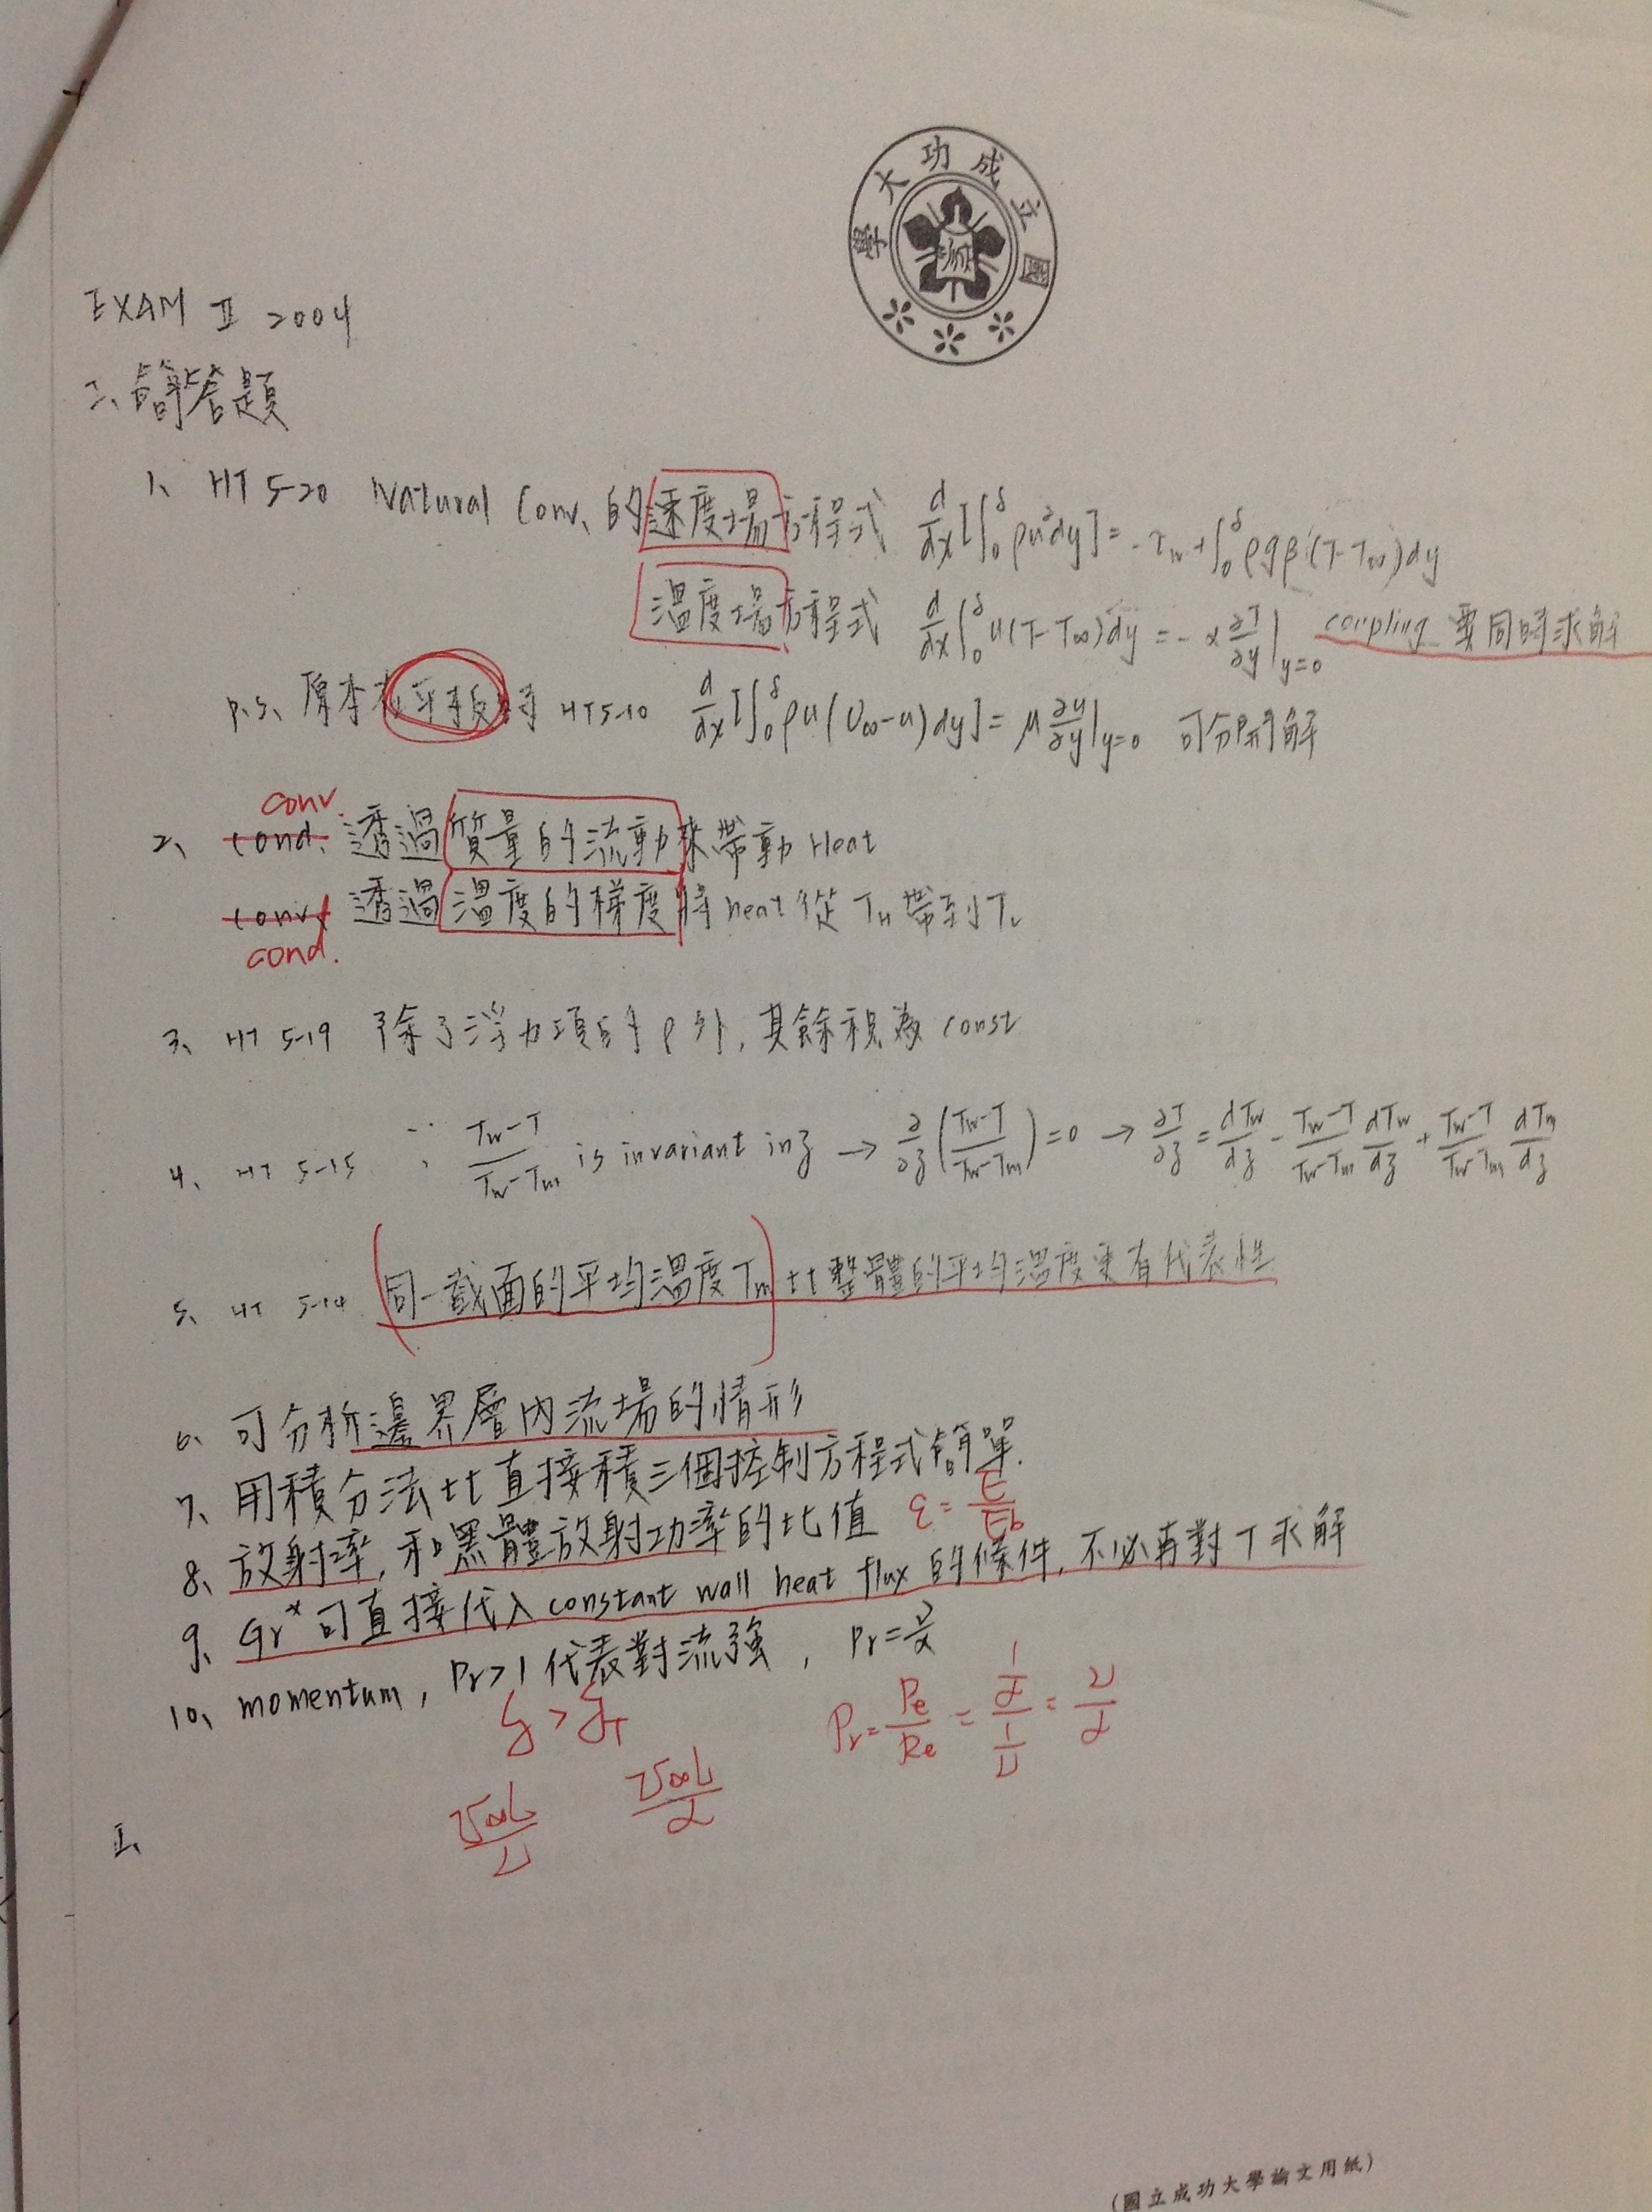 國立成功大學
EXAM II 2004
二、簡答題
1、 HT 5-20 Natural Conv. 的速度場方程式 d/dx[∫₀^δ ρu²dy] = -τw + ∫₀^δ ρgβ(T-T∞)dy
溫度場方程式 d/dx∫₀^δ u(T-T∞)dy = -α ∂T/∂y|y=0 coupling 要同時求解
p.s. 原本在平板時 HT5-10 d/dx[∫₀^δ ρu(U∞-u)dy] = μ ∂u/∂y|y=0 可分開解
conv.
2、 cond. 透過質量的流動來帶動 Heat
conv. 透過溫度的梯度將 heat 從 TH 帶到 TL
cond.
3、 HT 5-19 除了浮力項的 ρ 外, 其餘視為 const
4、 HT 5-15 ∵ (Tw-T)/(Tw-Tm) is invariant in z → ∂/∂z((Tw-T)/(Tw-Tm)) = 0 → ∂T/∂z = dTw/dz - (Tw-T)/(Tw-Tm) dTw/dz + (Tw-T)/(Tw-Tm) dTm/dz
5、 HT 5-14 同一截面的平均溫度 Tm 比整體的平均溫度更有代表性
6、 可分析邊界層內流場的情形
7、 用積分法比直接積三個控制方程式簡單.
8、 放射率, 和黑體放射功率的比值 ε = E/Eb
9、 Gr* 可直接代入 constant wall heat flux 的條件, 不必再對 T 求解
10、 momentum, Pr>1 代表對流強, Pr = ν/α
δ > δT Pr = Pe/Re = (1/α)/(1/ν) = ν/α
U∞L/ν U∞L/α
I、
(國立成功大學論文用紙)